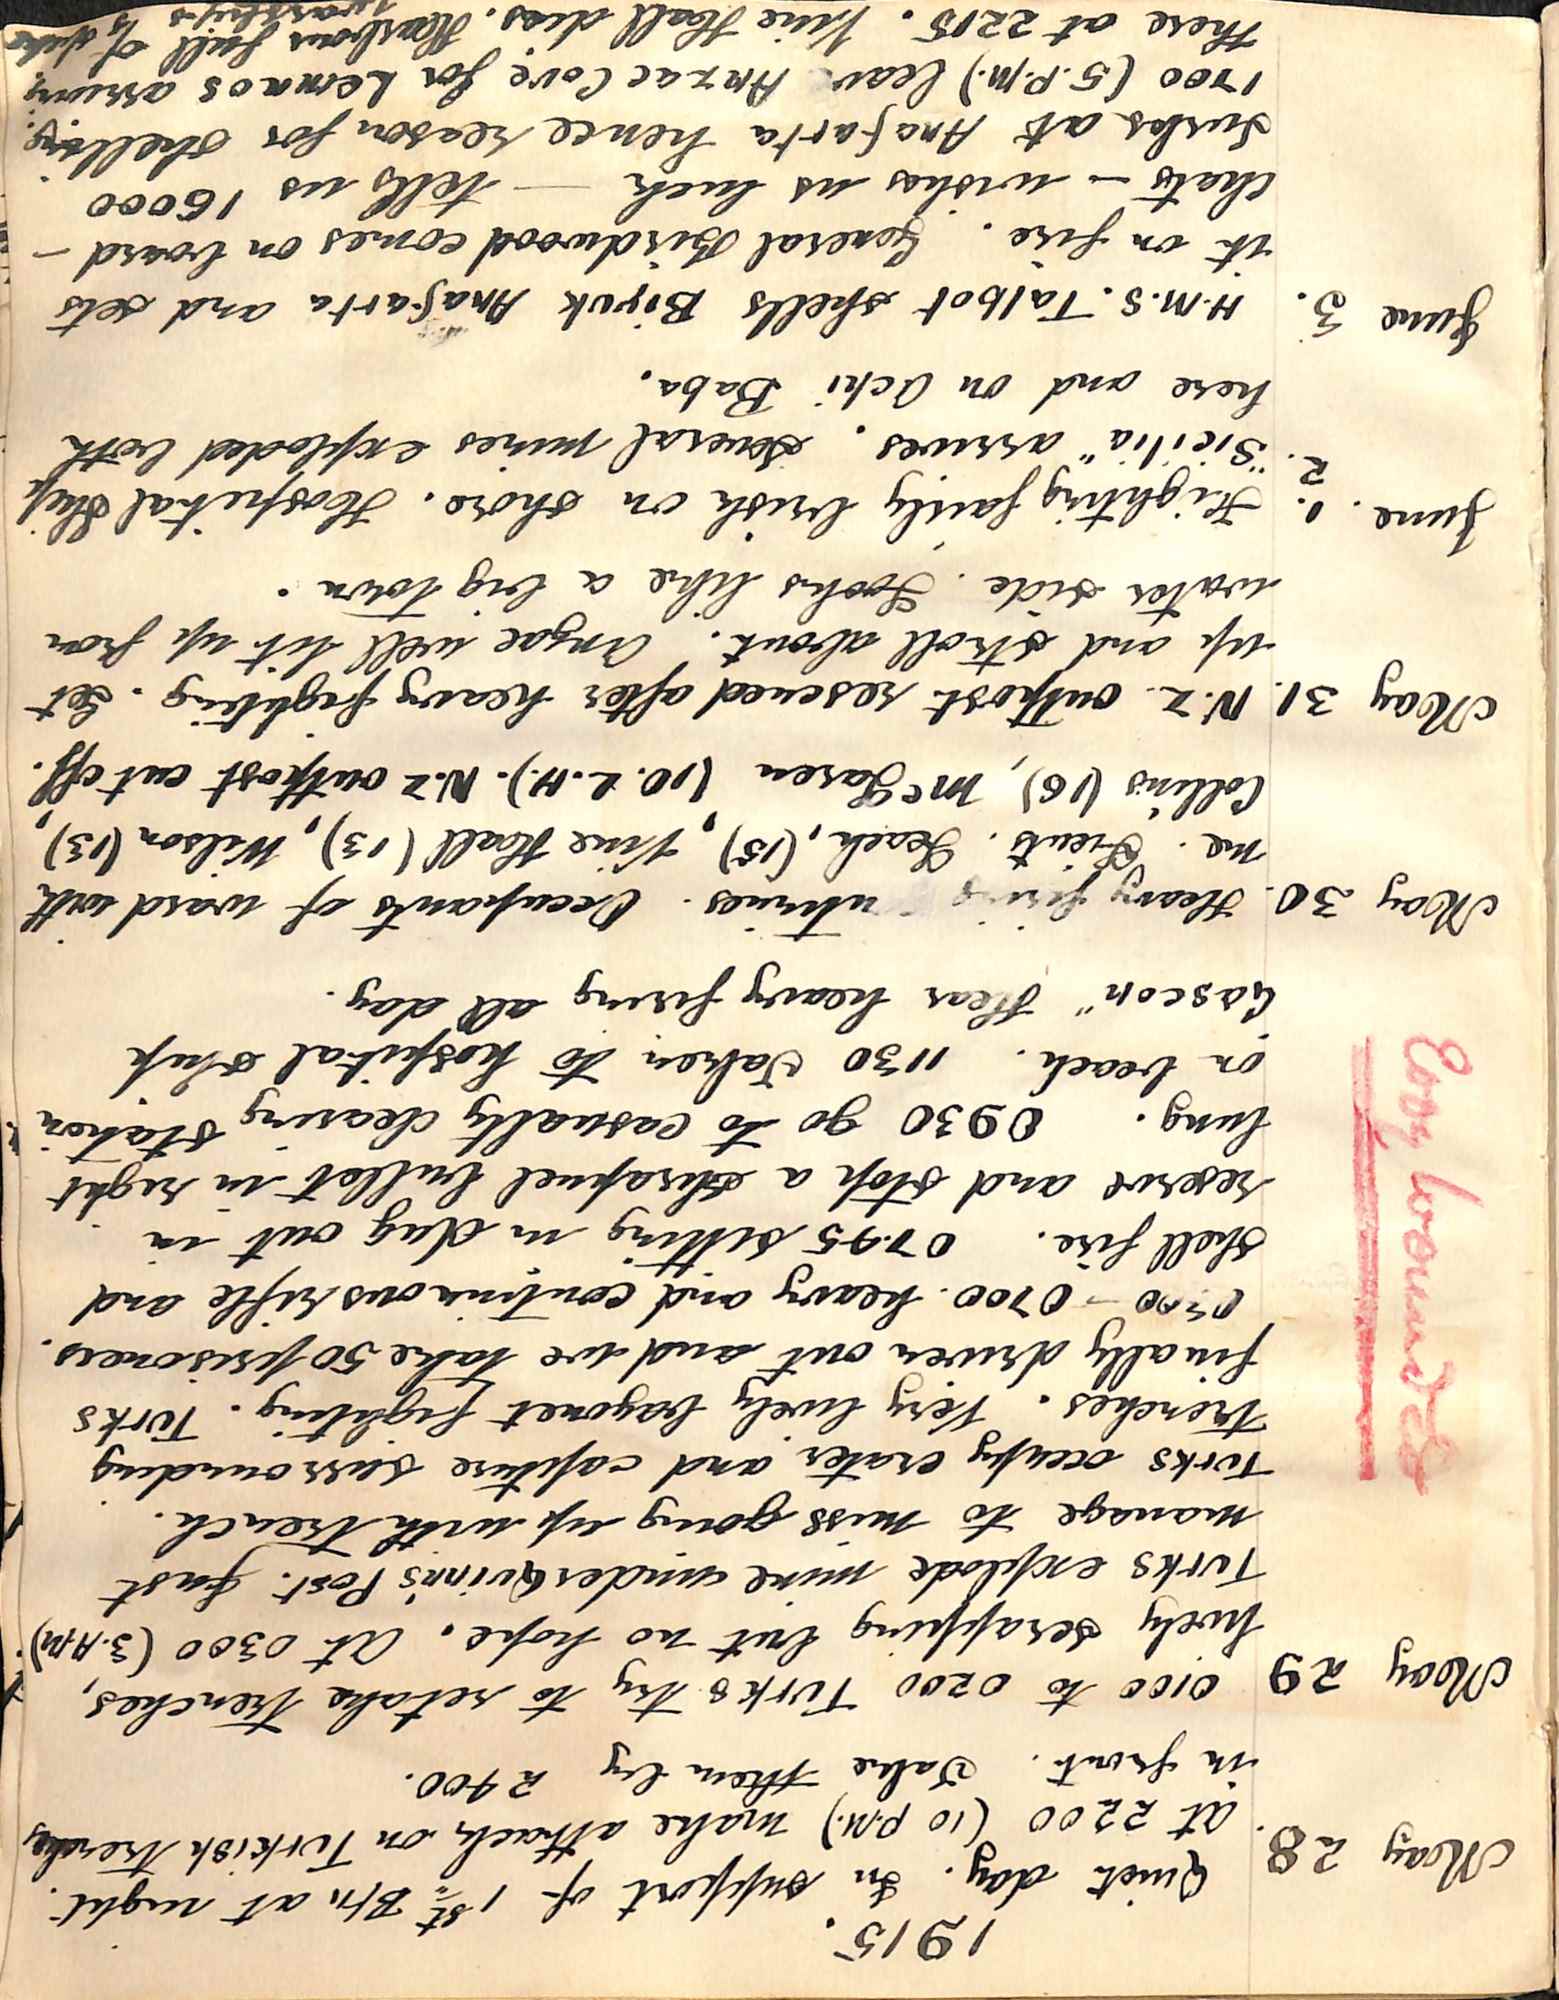 1915.
May 28 Quiet day. In support of 1st Btn at night.
At 2200 (10 P.M.) make attack on Turkish trenches
in front. Take them by 2400.
May 29 0100 to 0200 Turks try to retake trenches,
lively scrapping but no hope. At 0300 (3.AM)
Turks explode mine under Quinn's Post. Just
manage to miss going up with trench.
Turks occupy crater and capture surrounding
trenches. Very lively bayonet fighting. Turks
finally driven out and we take 50 prisoners.
0300 - 0700 heavy and continuous rifle and
shell fire. 0745 sitting in dug out in
reserve and stop a shrapnel bullet in right
lung. 0930 go to casualty clearing station
on beach. 1130 Taken to hospital ship
"Gascon" Hear heavy firing all day.
Eoy wounded
May 30. Heavy firing continues. Occupants of ward with
me. Lieuts. Leach, (15), Vine Hall (13), Wilson (13),
Collins (16), McLaren (10. L.H.). N.Z outpost cut off.
May 31. N.Z. outpost rescued after heavy fighting. Get
up and stroll about. Anzac well lit up from
water side. Looks like a big town.
June. 1. Fighting fairly brisk on shore. Hospital Ship
2. "Sicilia" arrives. Several mines exploded both
here and on Achi Baba.
June 3. H.M.S. Talbot shells Biyuk Anafarta and sets
it on fire. General Birdwood comes on board -
chats - wishes us luck - tells us 16000
Turks at Anafarta hence reason for shelling.
1700 (5.P.M.) leave Anzac Cove for Lemnos arriving
there at 2215. Vine Hall dies. Harbour full of
warships